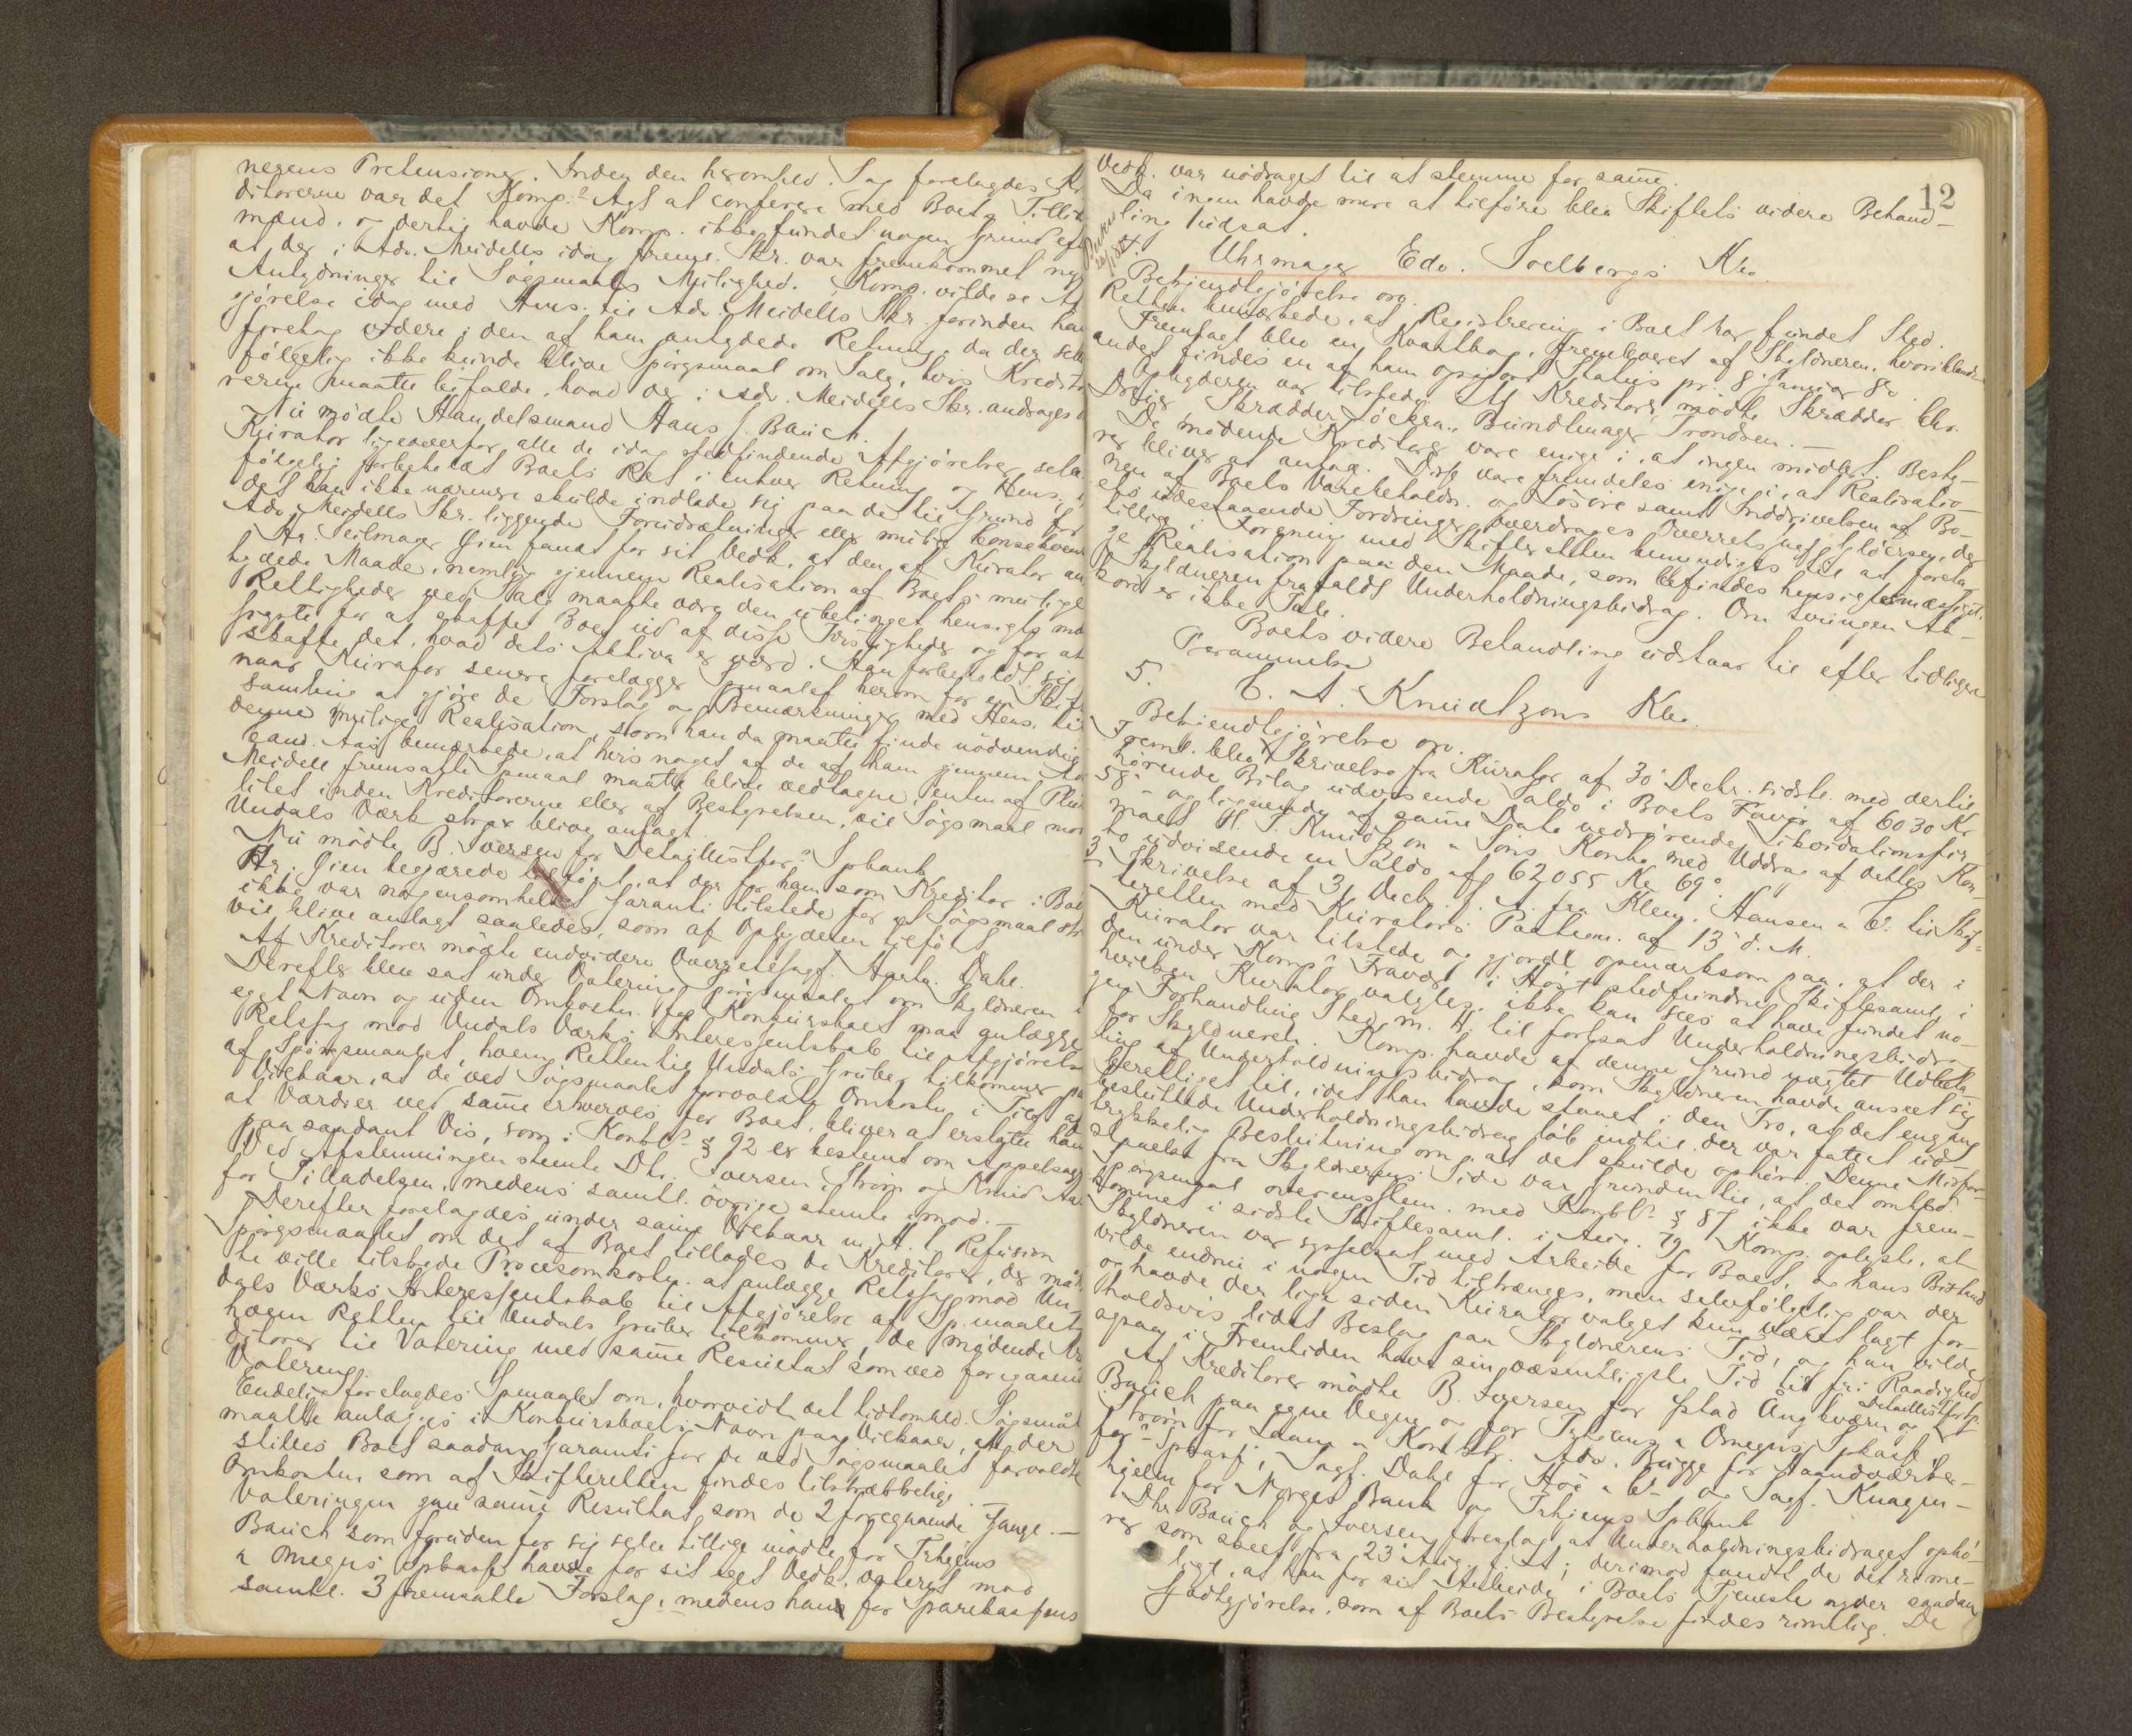 nerens Pretensioner. Inden den heromhld. Sag forelagdes Kr
ditorerne var det Komp.s Agt at conferere med Boets Tillids
mænd, og dertil havde Komp. ikke fundet nogen Grund eft
at der i Adv. Meidells idag fremk. Skr. var fremkommet nye
Antydninger til Søgsmaalets Mulighed. Komp. vilde se Af
gjørelse idag med Hens. til Adv. Meidells Skr. forinden han
foretog videre i den af ham antydede Retning, da der selv
følgelig ikke kunde blive Spørgsmaal om Salg, hvis Kredito
rerne maatte bifalde, hvad der i Adv. Meidells Skr. andrages o
Nu mødte Handelsmand Hans J. Bauch.
Kurator ligeoverfor alle de idag stedfindende Afgjørelser selv
følgelig forbeholdt Boets Ret i enhver Retning og Hens. i
det han ikke nærmere skulde indlade sig paa de til Grund for
Adv. Meidells Skr. liggende Forudsætninger eller mulige Konsekvents
Hr. Seilmager Gien fandt for sit Vedk. at den af Kurator an
tydede Maade, nemlig gjennem Realisation af Boets mulige
Rettigheder ved Salg maatte være den ubetinget hensigtsmæs
sigste for at skaffe Boet ud af disse Vidtløftigheder og for at
skaffe det, hvad dets Aktiva er værd. Han forbeholdt sig
naar Kurator senere forelægger Spmaalet herom for en Skifte
samling at gjøre de Forslag og Bemærkninger med Hens. til
denne mulige Realisation, som han da maatte finde nødvendig
Cand. Aas bemærkede, at hvis noget af de af ham gjennem Adv
Meidell fremsatte Spmaal maatte blive vedtagne, enten af Plur
litet inden Kreditorerne eller af Bestyrelsen, vil Søgsmaal mod
Undals Værk strax blive anlagt.
Nu mødte B. Iversen for Detaillistfor.s Spbank
Hr. Gien begjærede tilført, at der for ham som Kreditor i Boet
ikke var nogensomhelst Garanti tilstede for at Søgsmaal str
vil blive anlagt saaledes, som af Opbyderen tilført
Af Kreditorer mødte endvidere Overretssagf. Dahl.
Derefter blev sat under Votering Spørgsmaalet om Skyldneren i
eget Navn og uden Omkostn. for Konkursboet maa anlægge
Retssag mod Undals Værks Interessentskab til Afgjørelse
af Spørgsmaalet, hvem Retten til Undals Gruber tilkommer paa
Vilkaar, at de ved Søgsmaalet forvoldte Omkostn. i Tilf. af
at Værdier ved samme erhverves for Boet, bliver at erstatte ham
paa saadant Vis, som i Konkl.s § 92 er bestemt om Appelsager
Ved Afstemningen stemte Dhr. Iversen, Strøm og Knud Aas
for Tilladelsen, medens samtl. øvrige stemte imod.—
Derefter forelagdes under samme Vilkaar m. H. t. Refusion
Spørgsmaalet om det af Boet tillades de Kreditorer, der maat
te ville tilskyde Procesomkostn. at anlægge Retssag mod Un-
dals Værks Interessentskab til Afgjørelse af Sp.maalet,
hvem Retten til Undals Gruber tilkommer, de mødende Kre
ditorer til Votering med samme Resultat som ved foregaaende
Votering.
Endelig forelagdes Spmaalet om, hvorvidt det tidtomhld. Søgsmaal
maatte anlægges i Konkursboets Navn paa Vilkaar, at der
stilles Boet saadan Garanti for de ved Søgsmaalet forvoldte
Omkostn. som af Skifteretten findes tilstrækkelig.
Voteringen gav samme Resultat som de 2 foregaaende Gange.—
Bauch som foruden for sig selv tillige mødte for Trhjems
& Omegns Spkasse havde for sit eget Vedk. voteret mod
samtl. 3 fremsatte Forslag, medens han for Sparekassens
12
Vedk. var uddraget til at stemme for samme.
Da ingen havde mere at tilføre blev Skiftets videre Behand-
ling udsat.
Uhrmager Edv. Soelbergs Kbo.
Bekjendtgjørelse orv.
Retten bemærkede, at Registrering i Boet har fundet Sted.
Fremlagt blev en Kvartbog, fremleveret af Skyldneren, hvori blandt
andet findes en af ham opgjort Status pr. 8 Januar 80.
Opbyderen var tilstede. Af Kreditorer mødte Skrædder Chr.
Dreier Skrædder Løcken, Bundtmager Trondsen.—
De mødende Kreditorer vare enige i, at ingen midlert. Besty-
rer bliver at antage. Disse vare fremdeles enige i, at Realisatio-
nen af Boets Varebeholdn. og Løsøre samt Inddrivelsen af Bo-
ets udestaaende Fordringer overdrages Overretssagf. Gløersen, der
tillige i Forening med Skifteretten bemyndiges til at foreta-
ge Realisation paa den Maade, som befindes hensigtsmæssigst.
Skyldneren frafaldt Underholdningsbidrag. Om tvungen Ak-
kord er ikke Tale.
Boets videre Behandling udstaar til efter tidligere
Berammelse
5. C. A. Knudtzons Kbo.
Bekjendtgjørelse orv.
Freml. blev Skrivelse fra Kurator af 30 Decbr. sidstl. med dertil
hørende Bilag udvisende Saldo i Boets Favør af 6030 Kr
58 — og lignende af samme Dato vedrørende Likvidationsfir-
maet H. T. Knudtzon & Søns Konto med Uddrag af dettes Kon-
to udvisende en Saldo af 62055 Kr 69.
3 Skrivelse af 31 Decb. f. A. fra Klem. Hansen & Co. til Skif-
teretten med Kurators Paategn. af 13 d. M.
Kurator var tilstede og gjordt opmærksom paa, at der i
den under Komp.s Fravær i Høst stedfundne Skiftesaml. i
hvilken Kurator valgtes, ikke kan sees at have fundet no-
gen Forhandling Sted m. H. til fortsat Underholdningsbidrag
for Skyldneren. Komp. havde af denne Grund nægtet Udbeta-
ling af Underholdningsbidrag, som Skyldneren havde anseet sig
berettiget til, idet han havde staaet i den Tro, at det engang
besluttede Underholdningsbidrag løb indtil der var fattet ud-
trykkelig Beslutning om, at det skulde ophøre. Denne Misfor-
staaelse fra Skyldnerens Side var Grunden til, at det omhld.
Spørgsmaal overensstem. med Konkl.s § 87 ikke var frem-
kommet i sidste Skiftesaml. i Aug. 79. Komp. oplyste, at
Skyldneren var sysselsat med Arbeide for Boet, og hans Bistand
vilde endnu i nogen Tid tiltrænges, men selvfølgelig var der
og havde der lige siden Kuratorvalget kun været lagt for-
holdsvis lidet Beslag paa Skyldnerens Tid, og han vilde
ogsaa i Fremtiden have sin væsentligste Tid til fri Raadighed
Af Kreditorer mødte B. Iversen for Ejstad Ang kværn og Detaillistfor.s
Bauch paa egne Vegne og for Trhjems & Omegns Spkasse
Strøm for Laane & Kont. Adv. Bugge for Haandværker-
for.s Spkasse, Sagf. Dahl for Høe & Co og Sagf. Knagen-
hjelm for Norges Bank og Trhjems Spbank
Dhr Bauch og Iversen foreslog at Underholdningsbidraget ophø-
rer som skeet fra 23 Aug. f. A.; derimod fandt de det rime-
ligt, at han for sit Arbeide i Boets Tjeneste nyder saadan
Godtgjørelse, som af Boets Bestyrelse findes rimelig. De